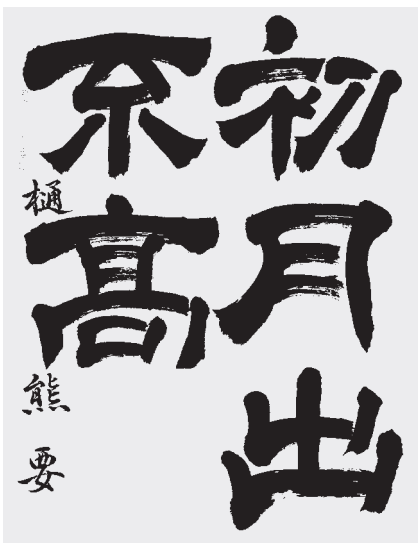 初月出
不高
樋熊要